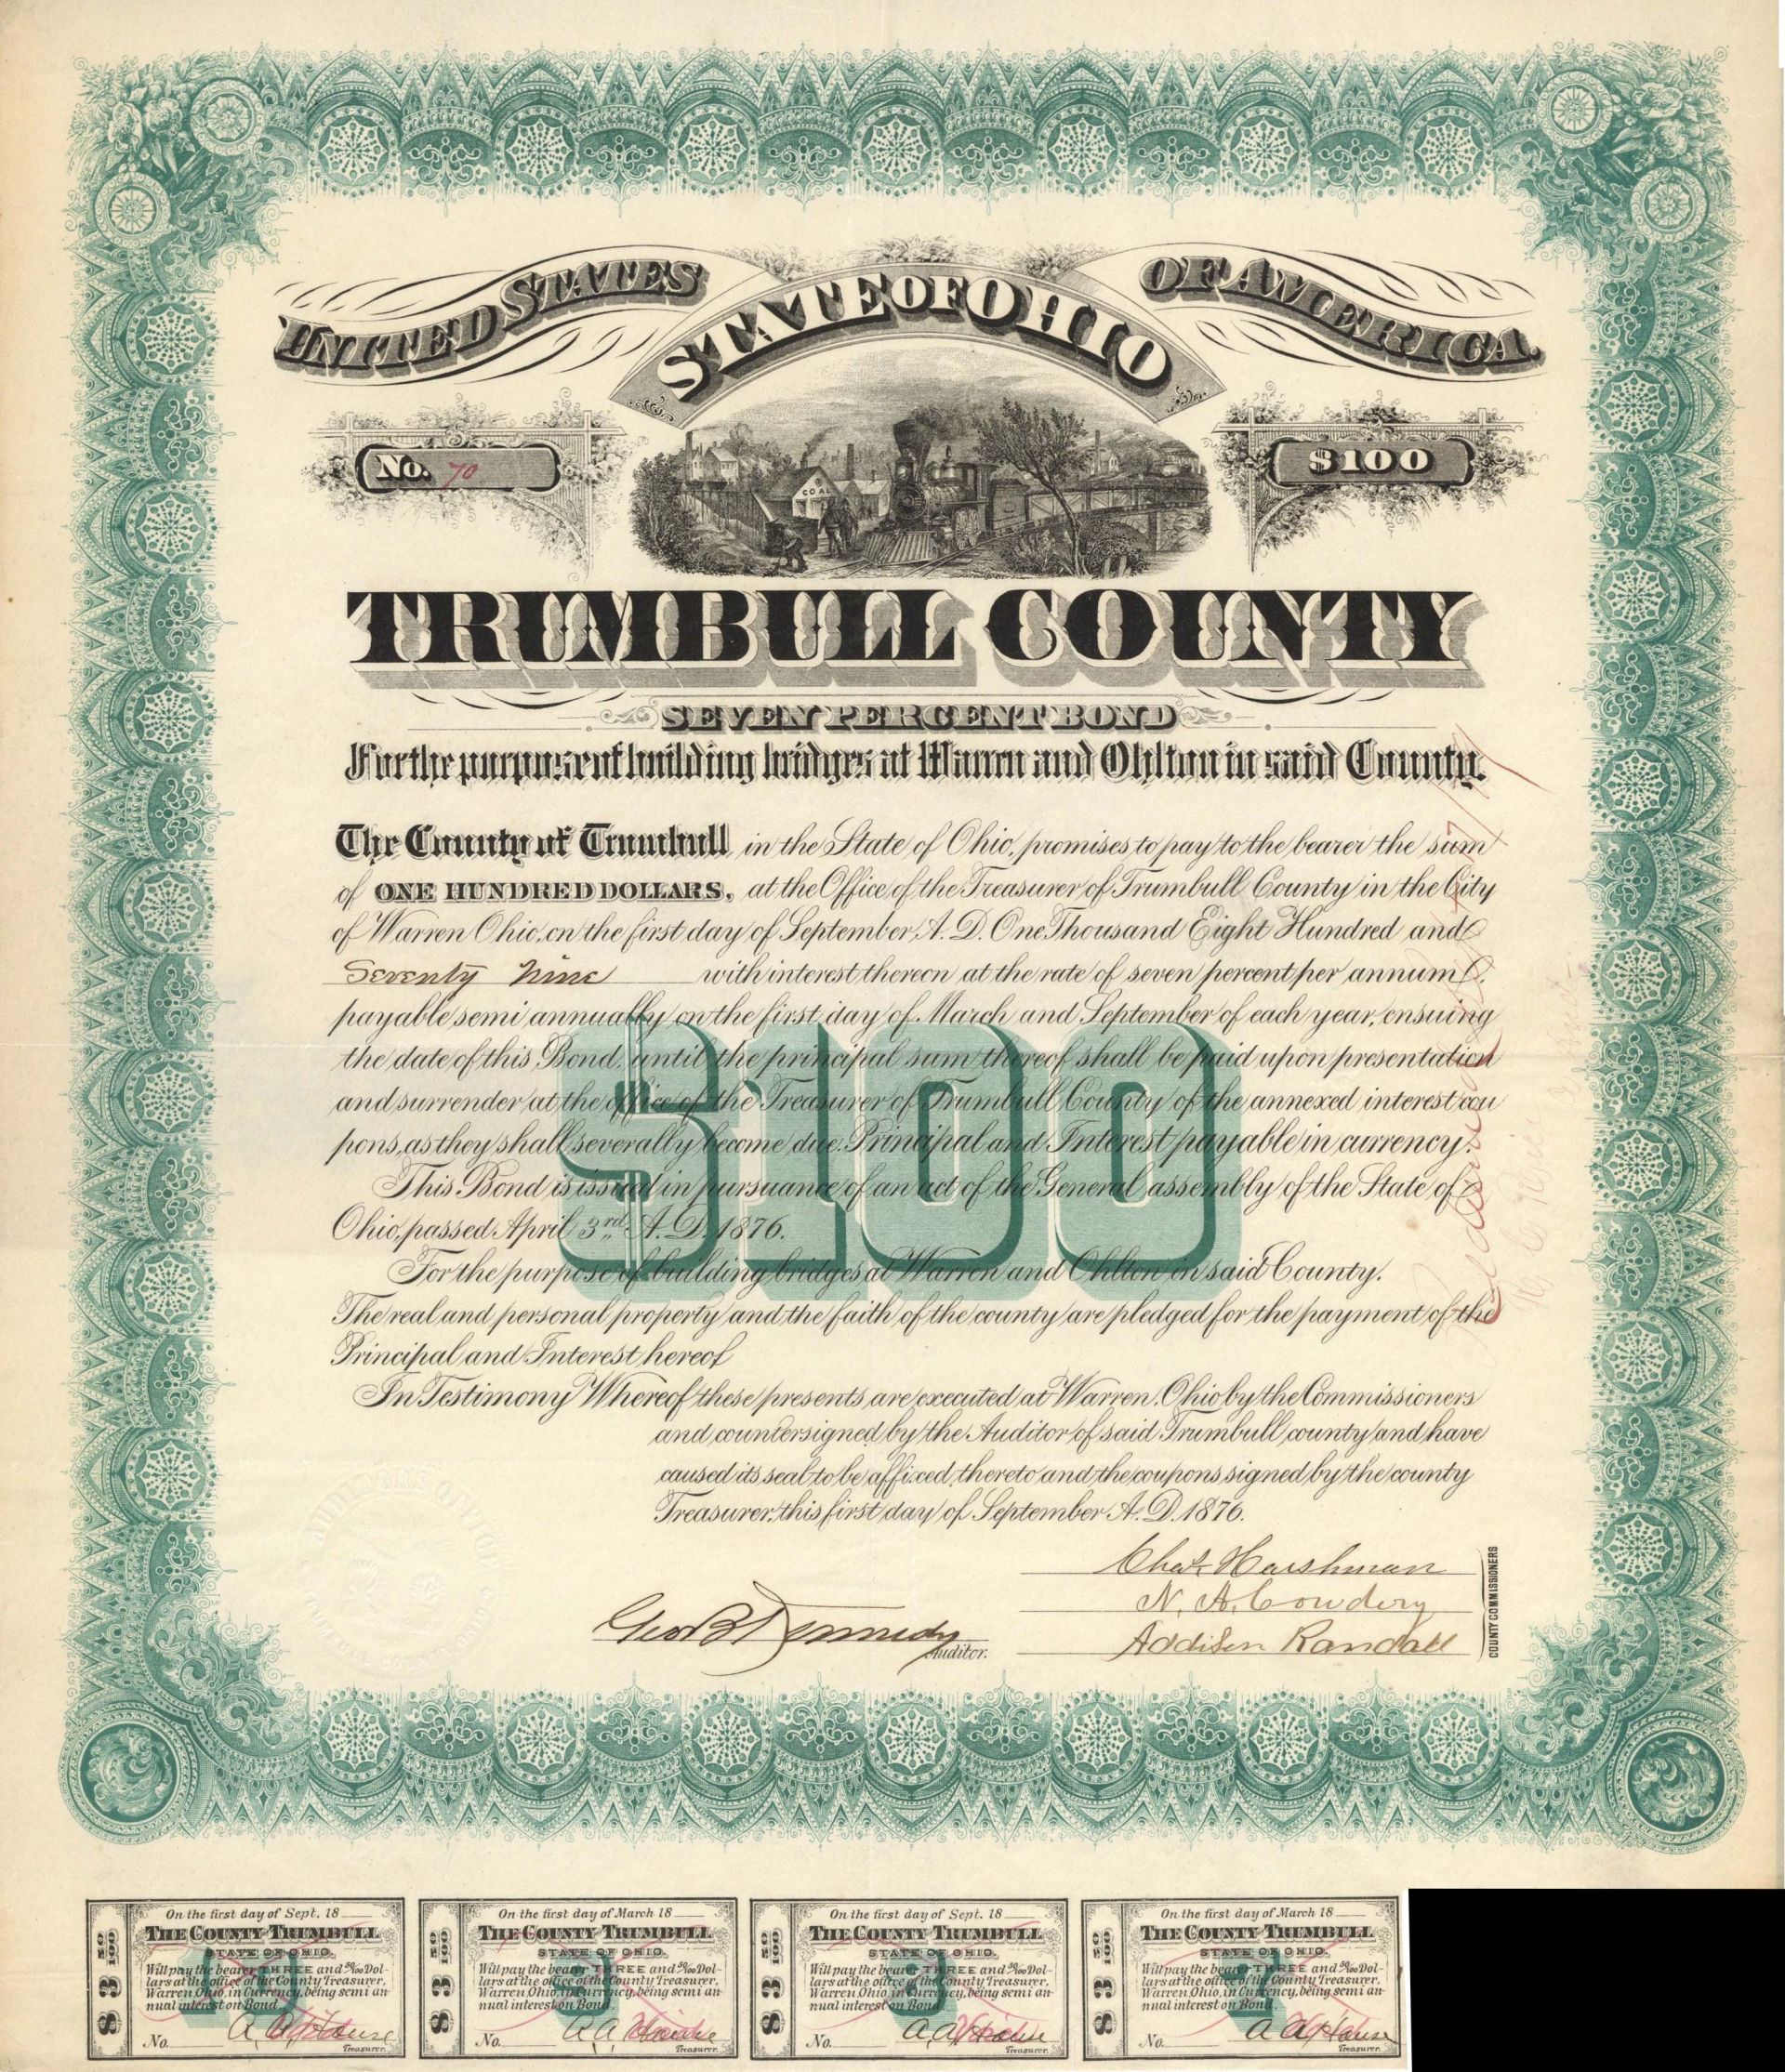 UNITED STATES OF AMERICA
STATE OF OHIO
No. 70
COAL
$100
TRUMBULL COUNTY
SEVEN PERCENT BOND
For the purpose of building bridges at Warren and Ohlton in said County.
The County of Trumbull in the State of Ohio, promises to pay to the bearer the sum
of ONE HUNDRED DOLLARS, at the Office of the Treasurer of Trumbull County in the City
of Warren Ohio, on the first day of September A. D. One Thousand Eight Hundred and
Seventy Nine with interest thereon at the rate of seven percent per annum
payable semi annually on the first day of March and September of each year, ensuing
the date of this Bond, until the principal sum thereof shall be paid upon presentation
and surrender at the office of the Treasurer of Trumbull County of the annexed interest cou
pons, as they shall severally become due. Principal and Interest payable in currency.
This Bond is issued in pursuance of an act of the General assembly of the State of
Ohio, passed April 3rd A. D. 1876.
For the purpose of building bridges at Warren and Ohlton in said County.
The real and personal property and the faith of the county are pledged for the payment of the
Principal and Interest hereof
In Testimony Whereof these presents are executed at Warren Ohio by the Commissioners
and countersigned by the Auditor of said Trumbull county and have
caused its seal to be affixed thereto and the coupons signed by the county
Treasurer, this first day of September A. D. 1876.
$100
Chas Harshman
N. A. Cowdery
Addison Randall
COUNTY COMMISSIONERS
Geo B Kennedy
Auditor.
On the first day of Sept. 18
THE COUNTY TRUMBULL
STATE OF OHIO.
Will pay the bearer THREE and 50/100 Dol-
lars at the office of the County Treasurer,
Warren Ohio, in Currency, being semi an-
nual interest on Bond
No.
A. A. House
Treasurer.
$3 50/100
On the first day of March 18
THE COUNTY TRUMBULL
STATE OF OHIO.
Will pay the bearer THREE and 50/100 Dol-
lars at the office of the County Treasurer,
Warren Ohio, in Currency, being semi an-
nual interest on Bond
No.
A. A. House
Treasurer.
$3 50/100
On the first day of Sept. 18
THE COUNTY TRUMBULL
STATE OF OHIO.
Will pay the bearer THREE and 50/100 Dol-
lars at the office of the County Treasurer,
Warren Ohio, in Currency, being semi an-
nual interest on Bond
No.
A. A. House
Treasurer.
$3 50/100
On the first day of March 18
THE COUNTY TRUMBULL
STATE OF OHIO.
Will pay the bearer THREE and 50/100 Dol-
lars at the office of the County Treasurer,
Warren Ohio, in Currency, being semi an-
nual interest on Bond
No.
A. A. House
Treasurer.
$3 50/100